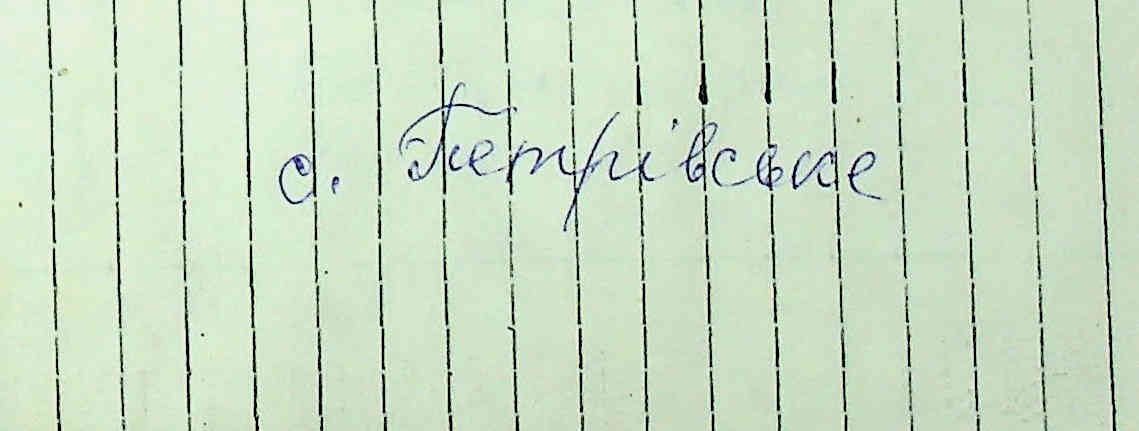 с. Петрівське